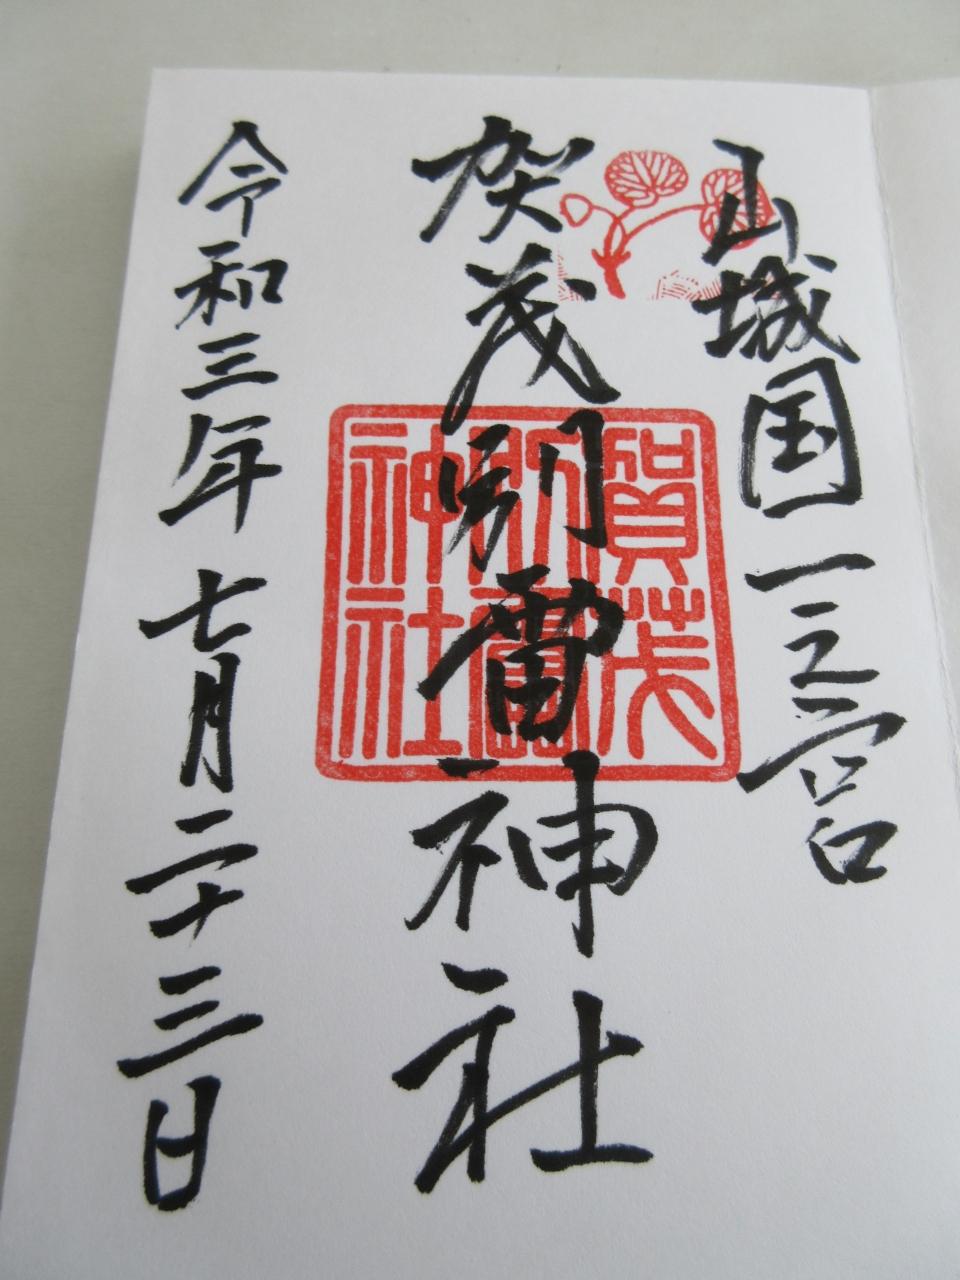 山城国一之宮
賀茂別雷神社
令和三年七月二十三日
賀茂
別雷
神社